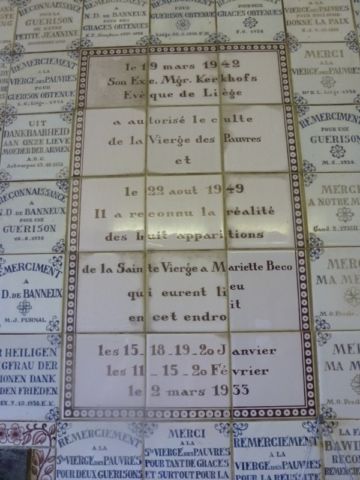 RECONNAISSANCE
POUR UNE
GUERISON
PETITE JEANNINE
A
N.D. DE BANNEUX
POUR
GUERISON OBTENUE
POUR
GUERISON OBTENUE
POUR
GRACES OBTENUES
VIERGE DES PAUVRES
POUR
LA PAIX
REMERCIEMENT
A LA
VIERGE DES PAUVRES
POUR
GUERISON OBTENUE
MERCI
A LA
VIERGE DES PAUVRES
UIT
DANKBAARHEID
AAN ONZE LIEVE
MOEDER DER ARMEN
REMERCIEMENT
POUR UNE
GUERISON
RECONNAISSANCE
A
N.D. DE BANNEUX
POUR UNE
GUERISON
MERCI
A NOTRE
REMERCIMENT
A
N.D. DE BANNEUX
M.J. PURNAL
MERCI
MA ME
R HEILIGEN
NGFRAU DER
IONEN DANK
DEN FRIEDEN
MERCI
MA M
le 19 mars 1942
Son Exc. Mgr. Kerkhofs
Evêque de Liége
a autorisé le culte
de la Vierge des Pauvres
et
le 22 aout 1949
Il a reconnu la réalité
des huit apparitions
de la Sainte Vierge a Mariette Beco
qui eurent lieu
en cet endroit
les 15-18-19-20 Janvier
les 11-15-20 Février
le 2 mars 1933
REMERCIEMENT
A LA
Ste VIERGE DES PAUVRES
POUR DEUX GUERISONS
MERCI
A LA
Ste VIERGE DES PAUVRES
POUR TANT DE GRACES
ET SURTOUT POUR LA
REMERCIEMENT
A LA
VIERGE DES PAUVRES
POUR LA REUSSITE
LA FA